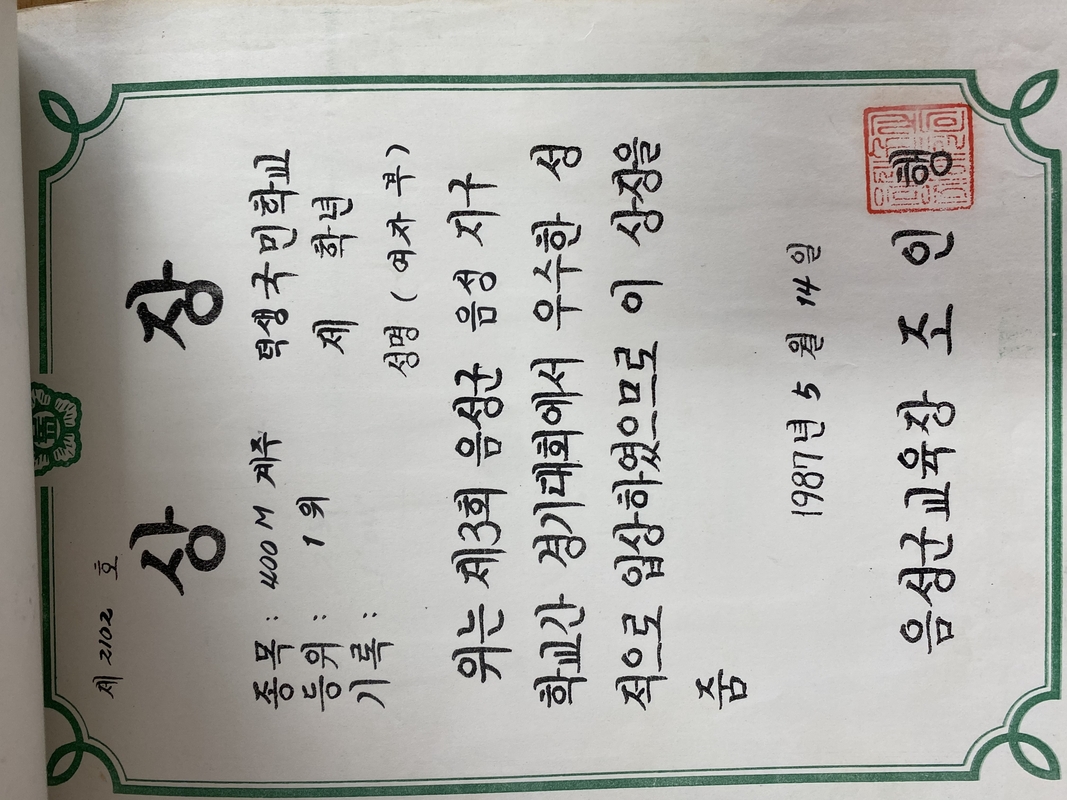 제 2102 호
상 장
종목 : 400 M 계주 덕생국민학교
등위 : 1 위 제 학년
기록 : 성명 ( 여자 부 )
위는 제3회 음성군 음성 지구
학교간 경기대회에서 우수한 성
적으로 입상하였으므로 이 상장을
줌
1987년 5 월 14 일
음성군교육장 조 인 행